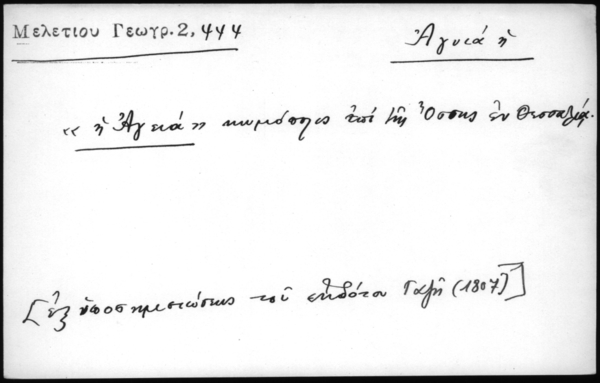 Μελετίου Γεωγρ. 2, 444
Ἀγυιά ἡ
« ἡ Ἀγειά » κωμόπολις ἐπὶ τῆς Ὄσσης ἐν Θεσσαλίᾳ.
[ἐξ ὑποσημειώσεως τοῦ ἐκδότου Γαζῆ (1807)]